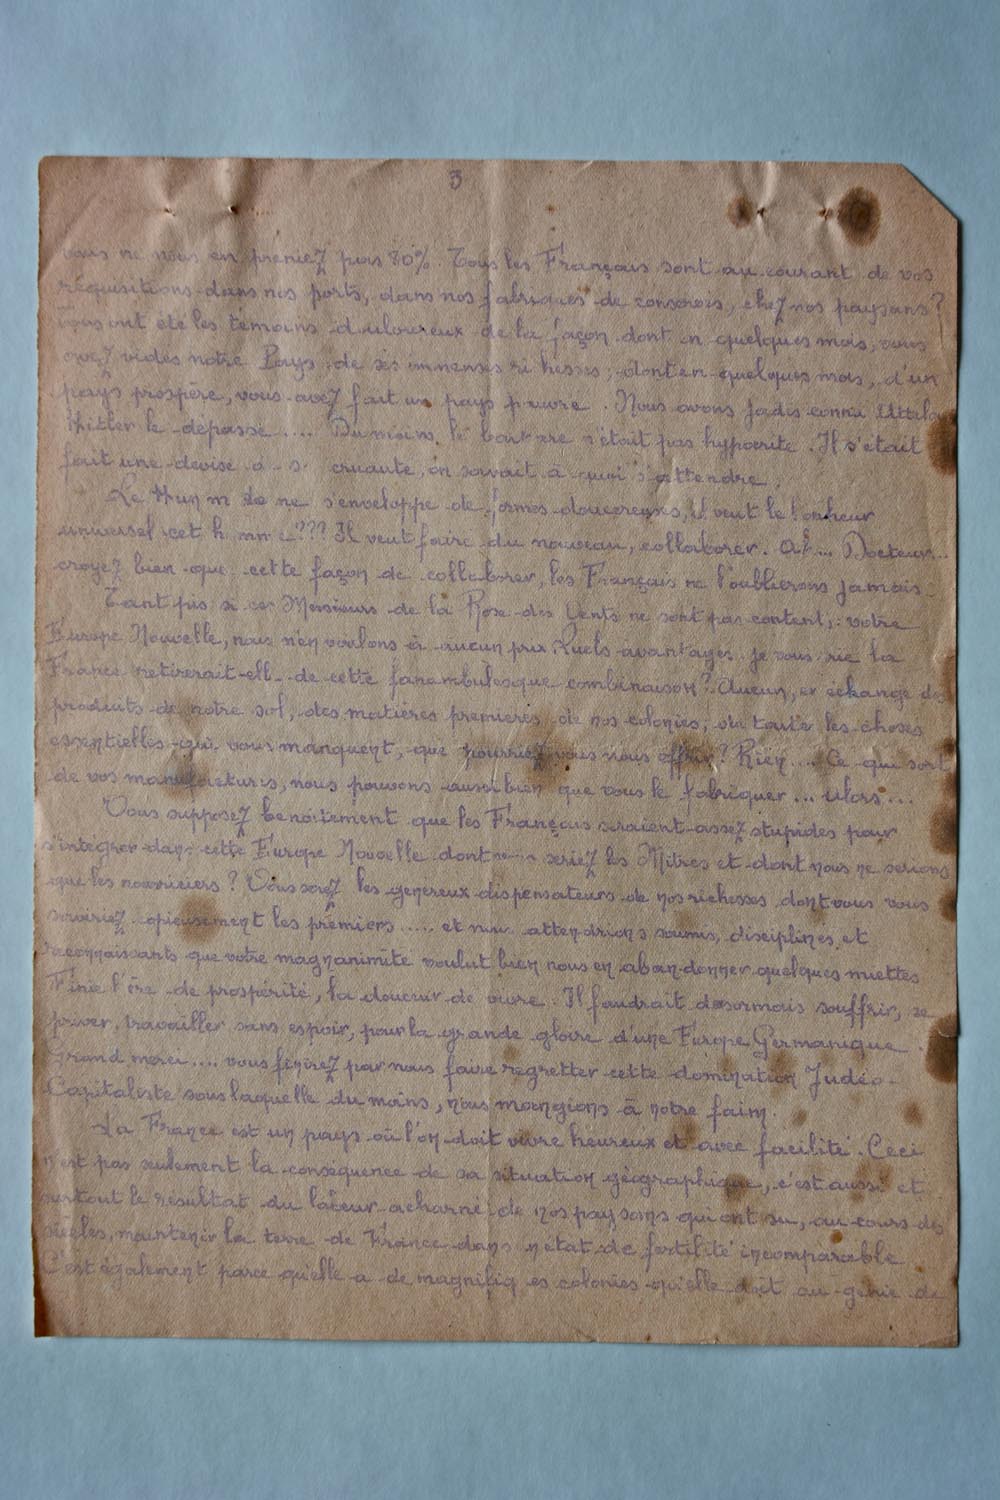 3
vous ne nous en preniez pas 80%. Tous les Français sont au courant de vos
réquisitions dans nos ports, dans nos fabriques de conserves, chez nos paysans?
Tous ont été les témoins douloureux de la façon dont en quelques mois, vous
avez vidés notre Pays de ses immenses ri hesses; dont en quelques mois, d'un
pays prospère, vous avez fait un pays pauvre. Nous avons jadis connu Attila
Hitler le dépasse.... Du moins, le barbare n'était pas hypocrite. Il s'était
fait une devise de s cruauté, on savait à quoi s'attendre.
Le Hun m de ne s'enveloppe de formes doucereuses, il veut le bonheur
universel cet h mme??? Il veut faire du nouveau, collaborer. Ah... Docteur...
croyez bien que cette façon de collaborer, les Français ne l'oublierons jamais.
Tant pis si ces Messieurs de la Rose des Vents ne sont pas contents: votre
Europe Nouvelle, nous n'en voulons à aucun prix. Quels avantages je vous rie la
France retirerait-elle de cette fanambulesque combinaison? Aucun, en échange des
produits de notre sol, des matières premières de nos colonies, de toute les choses
essentielles qui vous manquent, que pourriez vous nous offrir? Rien.... Ce qui sort
de vos manufactures, nous pouvons aussi bien que vous le fabriquer... alors...
Vous supposez benoitement que les Français seraient assez stupides pour
s'intégrer dans cette Europe Nouvelle dont vous seriez les Mitres et dont nous ne serions
que les nourriciers? Vous serez les genereux dispensateurs de nos richesses dont vous vous
serviriez opieusement les prémiers..... et nous attendrions soumis, disciplinés et
reconnaissants que votre magnanimité voulut bien nous en abandonner quelques miettes
Finie l'ère de prospérité, la douceur de vivre. Il faudrait désormais souffrir, se
priver, travailler sans espoir, pour la grande gloire d'une Europe Germanique.
Grand merci.... vous finirez par nous faire regretter cette domination Judéo-
Capitaliste sous laquelle du moins, nous mangions à notre faim.
La France est un pays où l'on doit vivre heureux et avec facilité. Ceci
n'est pas seulement la conséquence de sa situation géographique, c'est aussi et
surtout le résultat du labeur acharné de nos paysans qui ont su, au cours des
siècles, maintenir la terre de France dans n état de fertilité incomparable
C'est également parce qu'elle a de magnifiq es colonies qu'elle doit au génie de